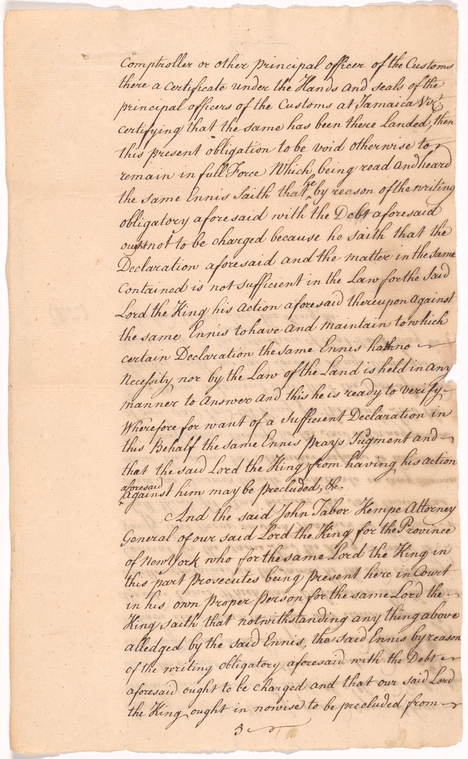 Comptroller or other principal officer of the Customs
there a Certificate under the Hands and seals of the
principal officers of the Customs at Jamaica &c
certifying that the same has been there Landed, then
this present obligation to be void otherwise to
remain in full Force Which being read and heard
the same Ennis Saith that he by reason of the writing
obligatory aforesaid with the Debt aforesaid
ought not to be charged because he saith that the
Declaration aforesaid and the matter in the same
Contained is not sufficient in the Law for the said
Lord the King his Action aforesaid thereupon against
the same Ennis to have and maintain to which
certain Declaration the same Ennis hath no
Necessity nor by the Law of the Land is held in any
manner to Answer And this he is ready to verify
Wherefore for want of a Sufficient Declaration in
this Behalf the same Ennis prays Jugment and
that the said Lord the King from having his action
aforesaid
against him may be precluded, &c.
And the said John Tabor Kempe Attorney
General of our said Lord the King for the Province
of New York who for the same Lord the King in
this part prosecutes being present here in Court
in his own proper Person for the same Lord the
King saith that notwithstanding any thing above
alledged by the said Ennis, the said Ennis by reason
of the writing obligatory aforesaid with the Debt
aforesaid ought to be charged and that our said Lord
the King ought in nowise to be precluded from
3